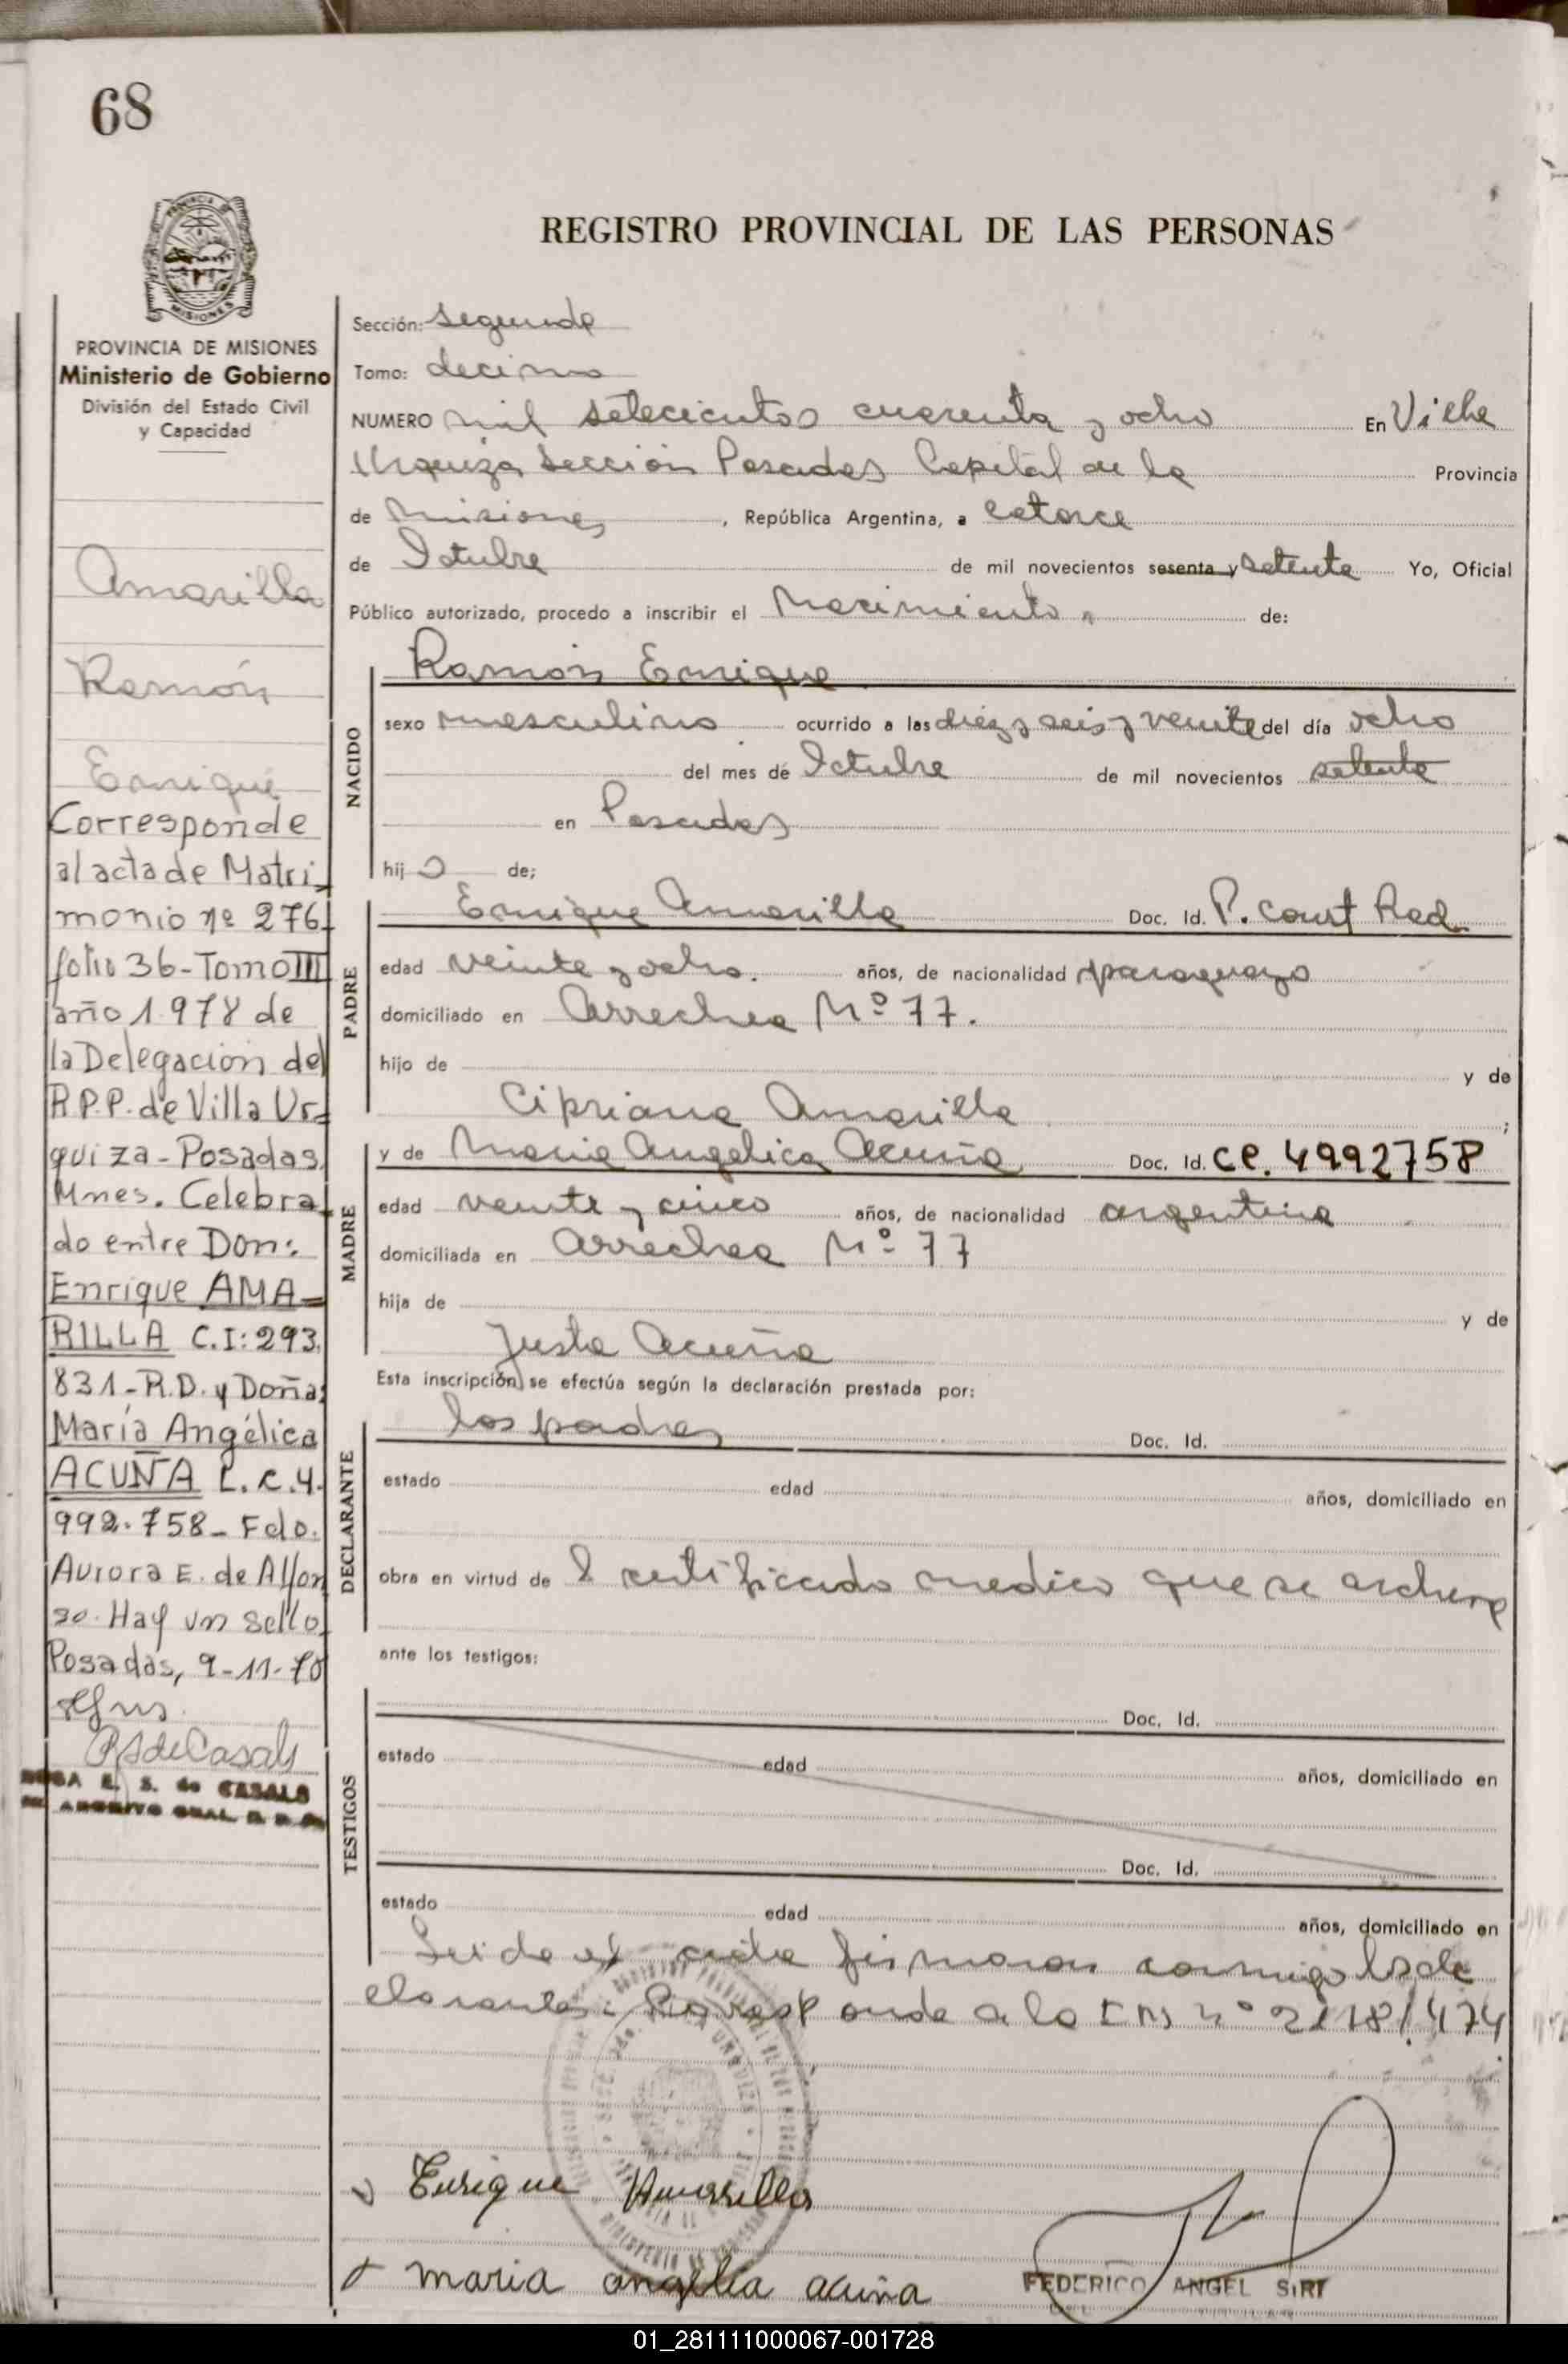 68
REGISTRO PROVINCIAL DE LAS PERSONAS
PROVINCIA DE MISIONES
Ministerio de Gobierno
División del Estado Civil
y Capacidad
Amarilla
Ramón
Enrique
Corresponde
al acta de Matri-
monio nº 276
folio 36-Tomo III
año 1978 de
la Delegación del
R.P.P. de Villa Ur-
quiza-Posadas
Mnes. Celebra-
do entre Don:
Enrique AMA-
RILLA C.I: 293.
831-R.D. y Doña:
María Angélica
ACUÑA L.C.4.
992.758- Fdo.
Aurora E. de Alfon
so. Hay un sello
Posadas, 9-11-78
RSdeCasals
E. S. de CASALS
Sección: segunda
Tomo: decimo
NUMERO mil setecientos cuarenta y ocho En Villa
Urquiza Sección Posadas Capital de la Provincia
de Misiones, República Argentina, a catorce
de Octubre de mil novecientos sesenta y setenta Yo, Oficial
Público autorizado, procedo a inscribir el Nacimiento de:
NACIDO
Ramón Enrique
sexo masculino ocurrido a las diez y seis y veinte del día ocho
del mes de Octubre de mil novecientos setenta
en Posadas
hij o de;
PADRE
Enrique Amarilla Doc. Id. P. Const Rad.
edad veinte y ocho. años, de nacionalidad paraguayo
domiciliado en Arrechea Nº 77.
hijo de y de
Cipriana Amarilla ;
MADRE
y de Maria Angelica Acuña Doc. Id. CP. 4992758
edad veinte y cinco años, de nacionalidad argentina
domiciliada en Arrechea Nº 77
hija de y de
Justa Acuña
Esta inscripción se efectúa según la declaración prestada por:
DECLARANTE
los padres Doc. Id.
estado edad años, domiciliado en
obra en virtud de l certificado medico que se archiva
ante los testigos:
TESTIGOS
Doc. Id.
estado edad años, domiciliado en
Doc. Id.
estado edad años, domiciliado en
Leida el acta firmaron conmigo ls de
clarantes. Corresponde a la nº 2118/474
Enrique Amarilla
maria angelica acuña
FEDERICO ANGEL SIRI
01_281111000067-001728